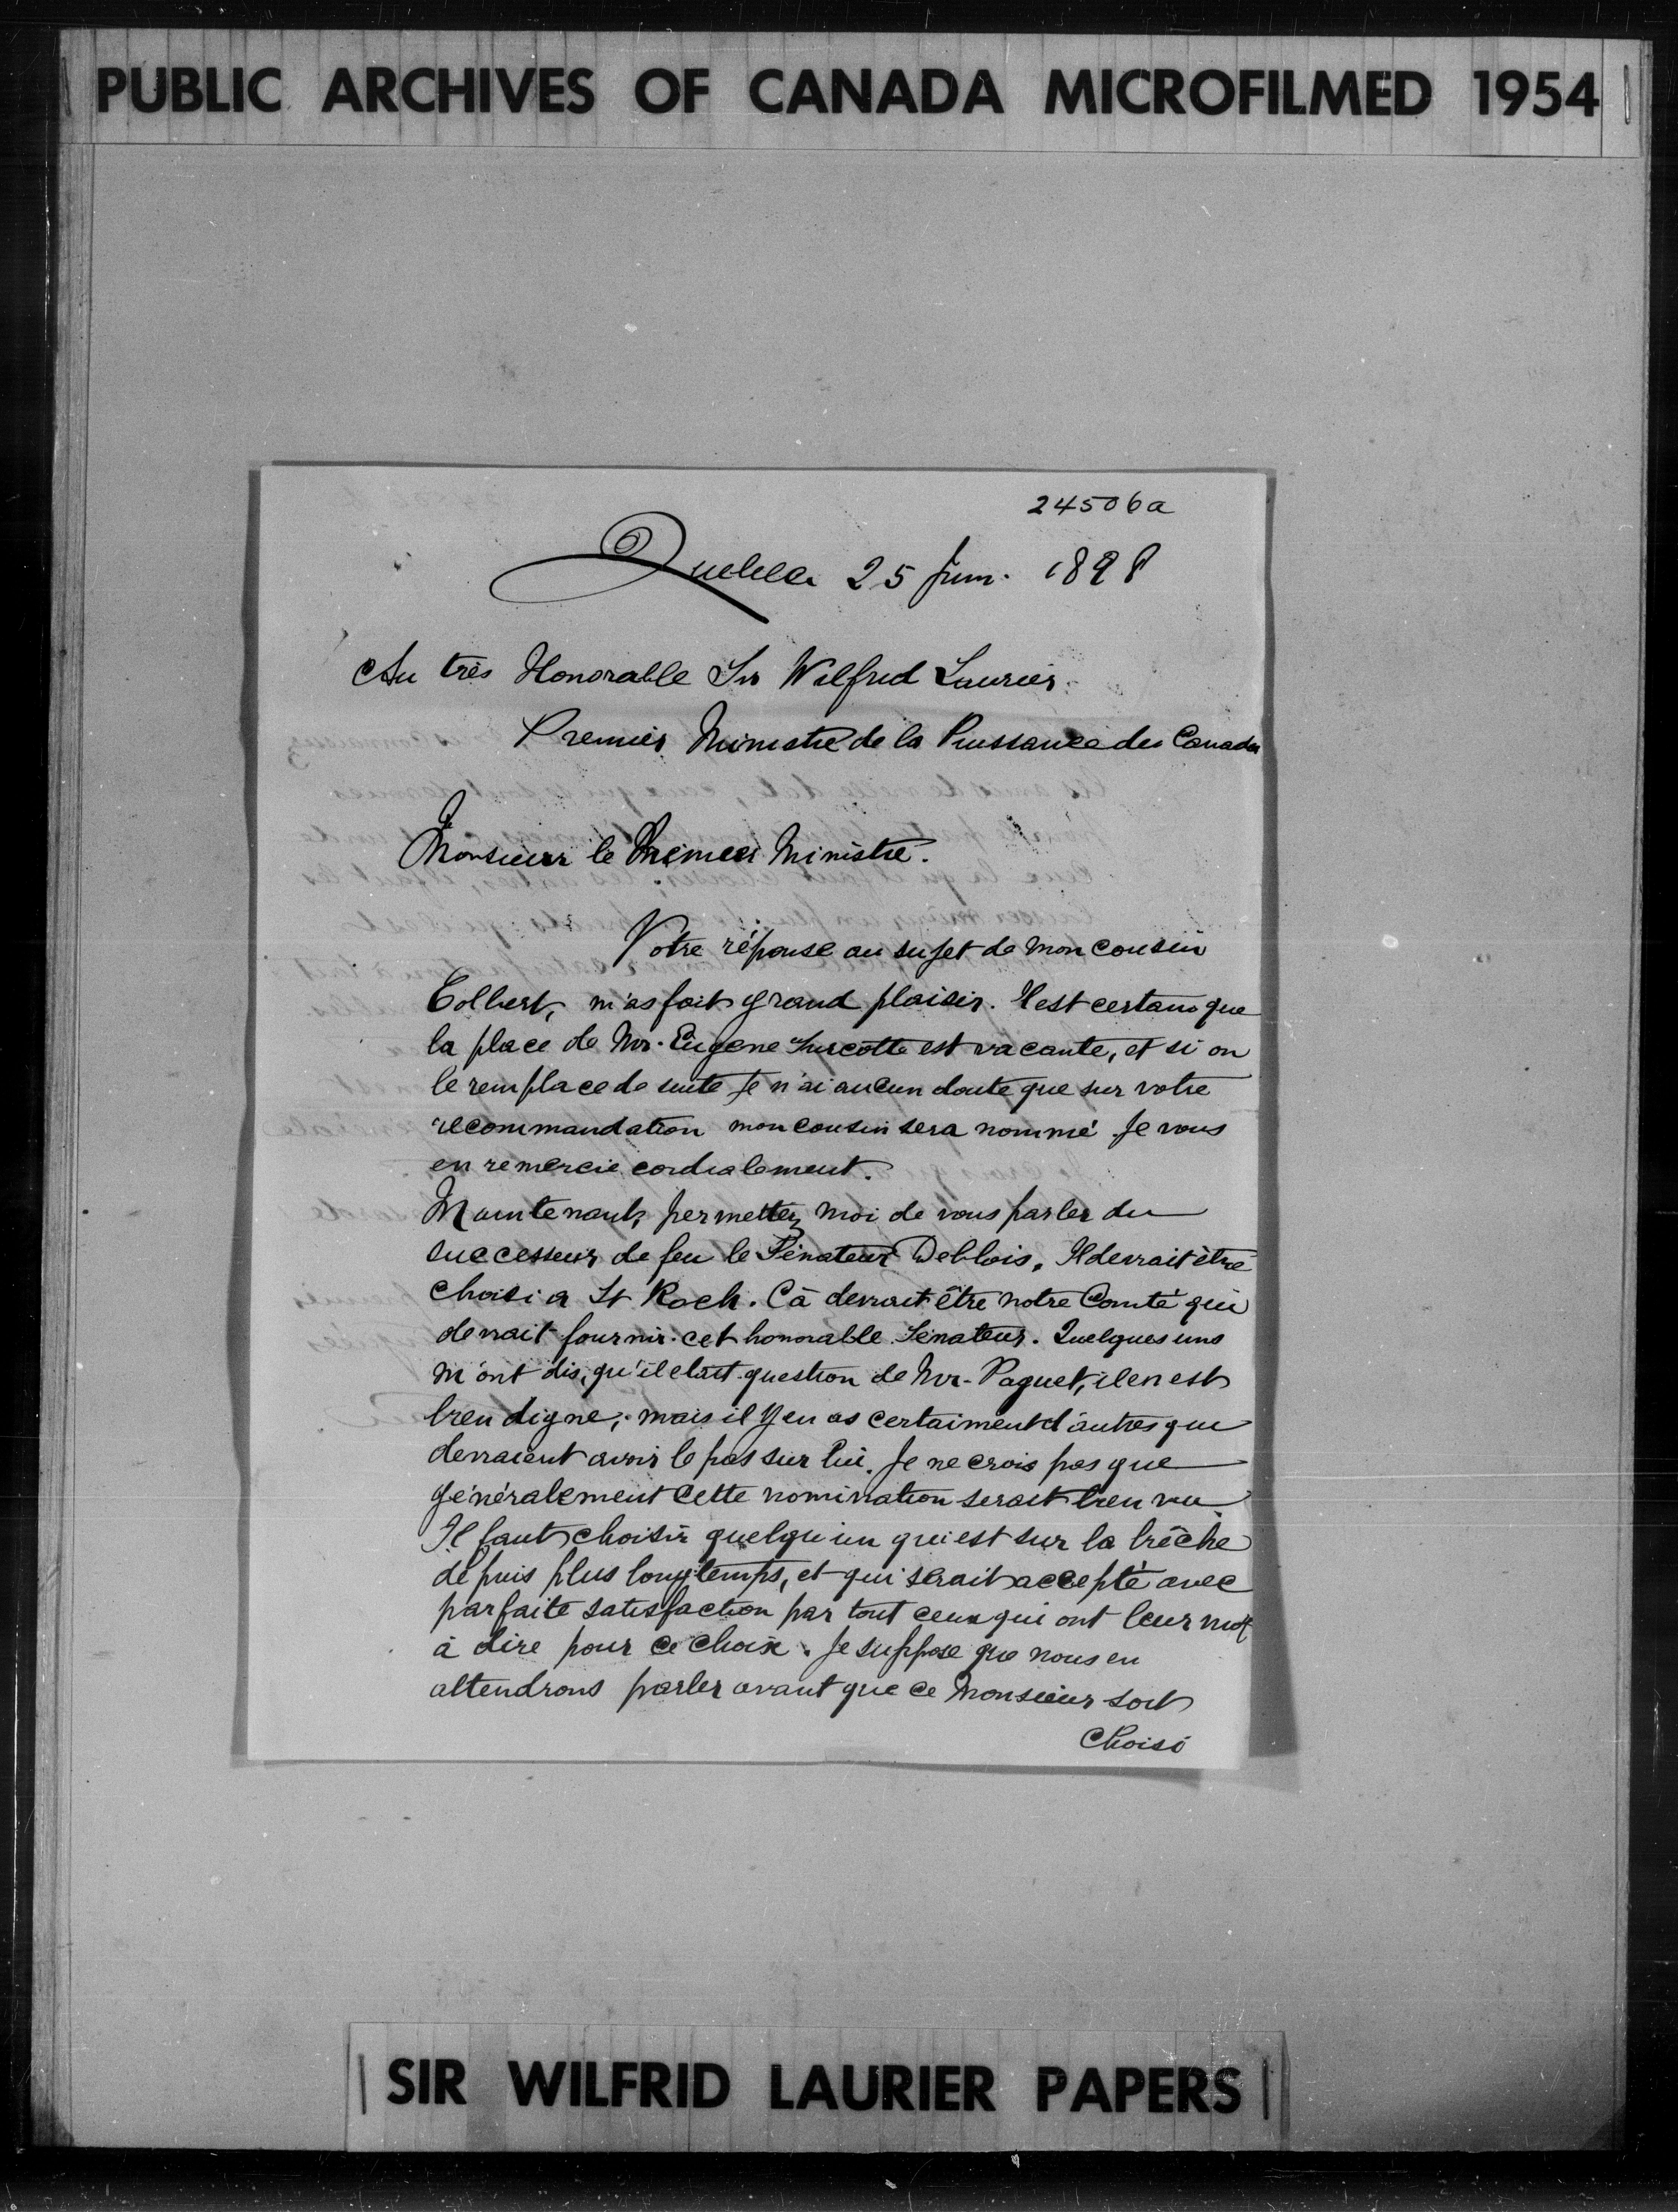 PUBLIC ARCHIVES OF CANADA MICROFILMED 1954
24506a
Quebec 25 Juin. 1898
Au très Honorable Sir Wilfrid Laurier
Premier Ministre de la Puissance du Canada
Monsieur le Premier Ministre.
Votre réponse au sujet de mon cousin
Colbert, m'as fait grand plaisir. Il est certain que
la place de Mr. Eugene Turcotte est vacante, et si on
le remplace de suite je n'ai aucun doute que sur votre
recommandation mon cousin sera nommé Je vous
en remercie cordialement.
Maintenant, permettez moi de vous parler du
successeur de feu le Sénateur Deblois. Il devrait être
choisi a St Roch. Cà devrait être notre Comté qui
devrait fournir cet honorable Sénateur. Quelques uns
m'ont dis, qu'il etait question de Mr. Paquet, il en est
bien digne, mais il y en as certaiment d'autres que
devraient avoir le pas sur lui. Je ne crois pas que
généralement cette nomination serait bien vu
Il faut choisir quelqu'un qui est sur la brêche
depuis plus longtemps, et qui serait accepté avec
parfaite satisfaction par tout ceux qui ont leur mot
à dire pour ce choix. Je suppose que nous en
attendrons parler avant que ce Monsieur soit
Choisi
SIR WILFRID LAURIER PAPERS